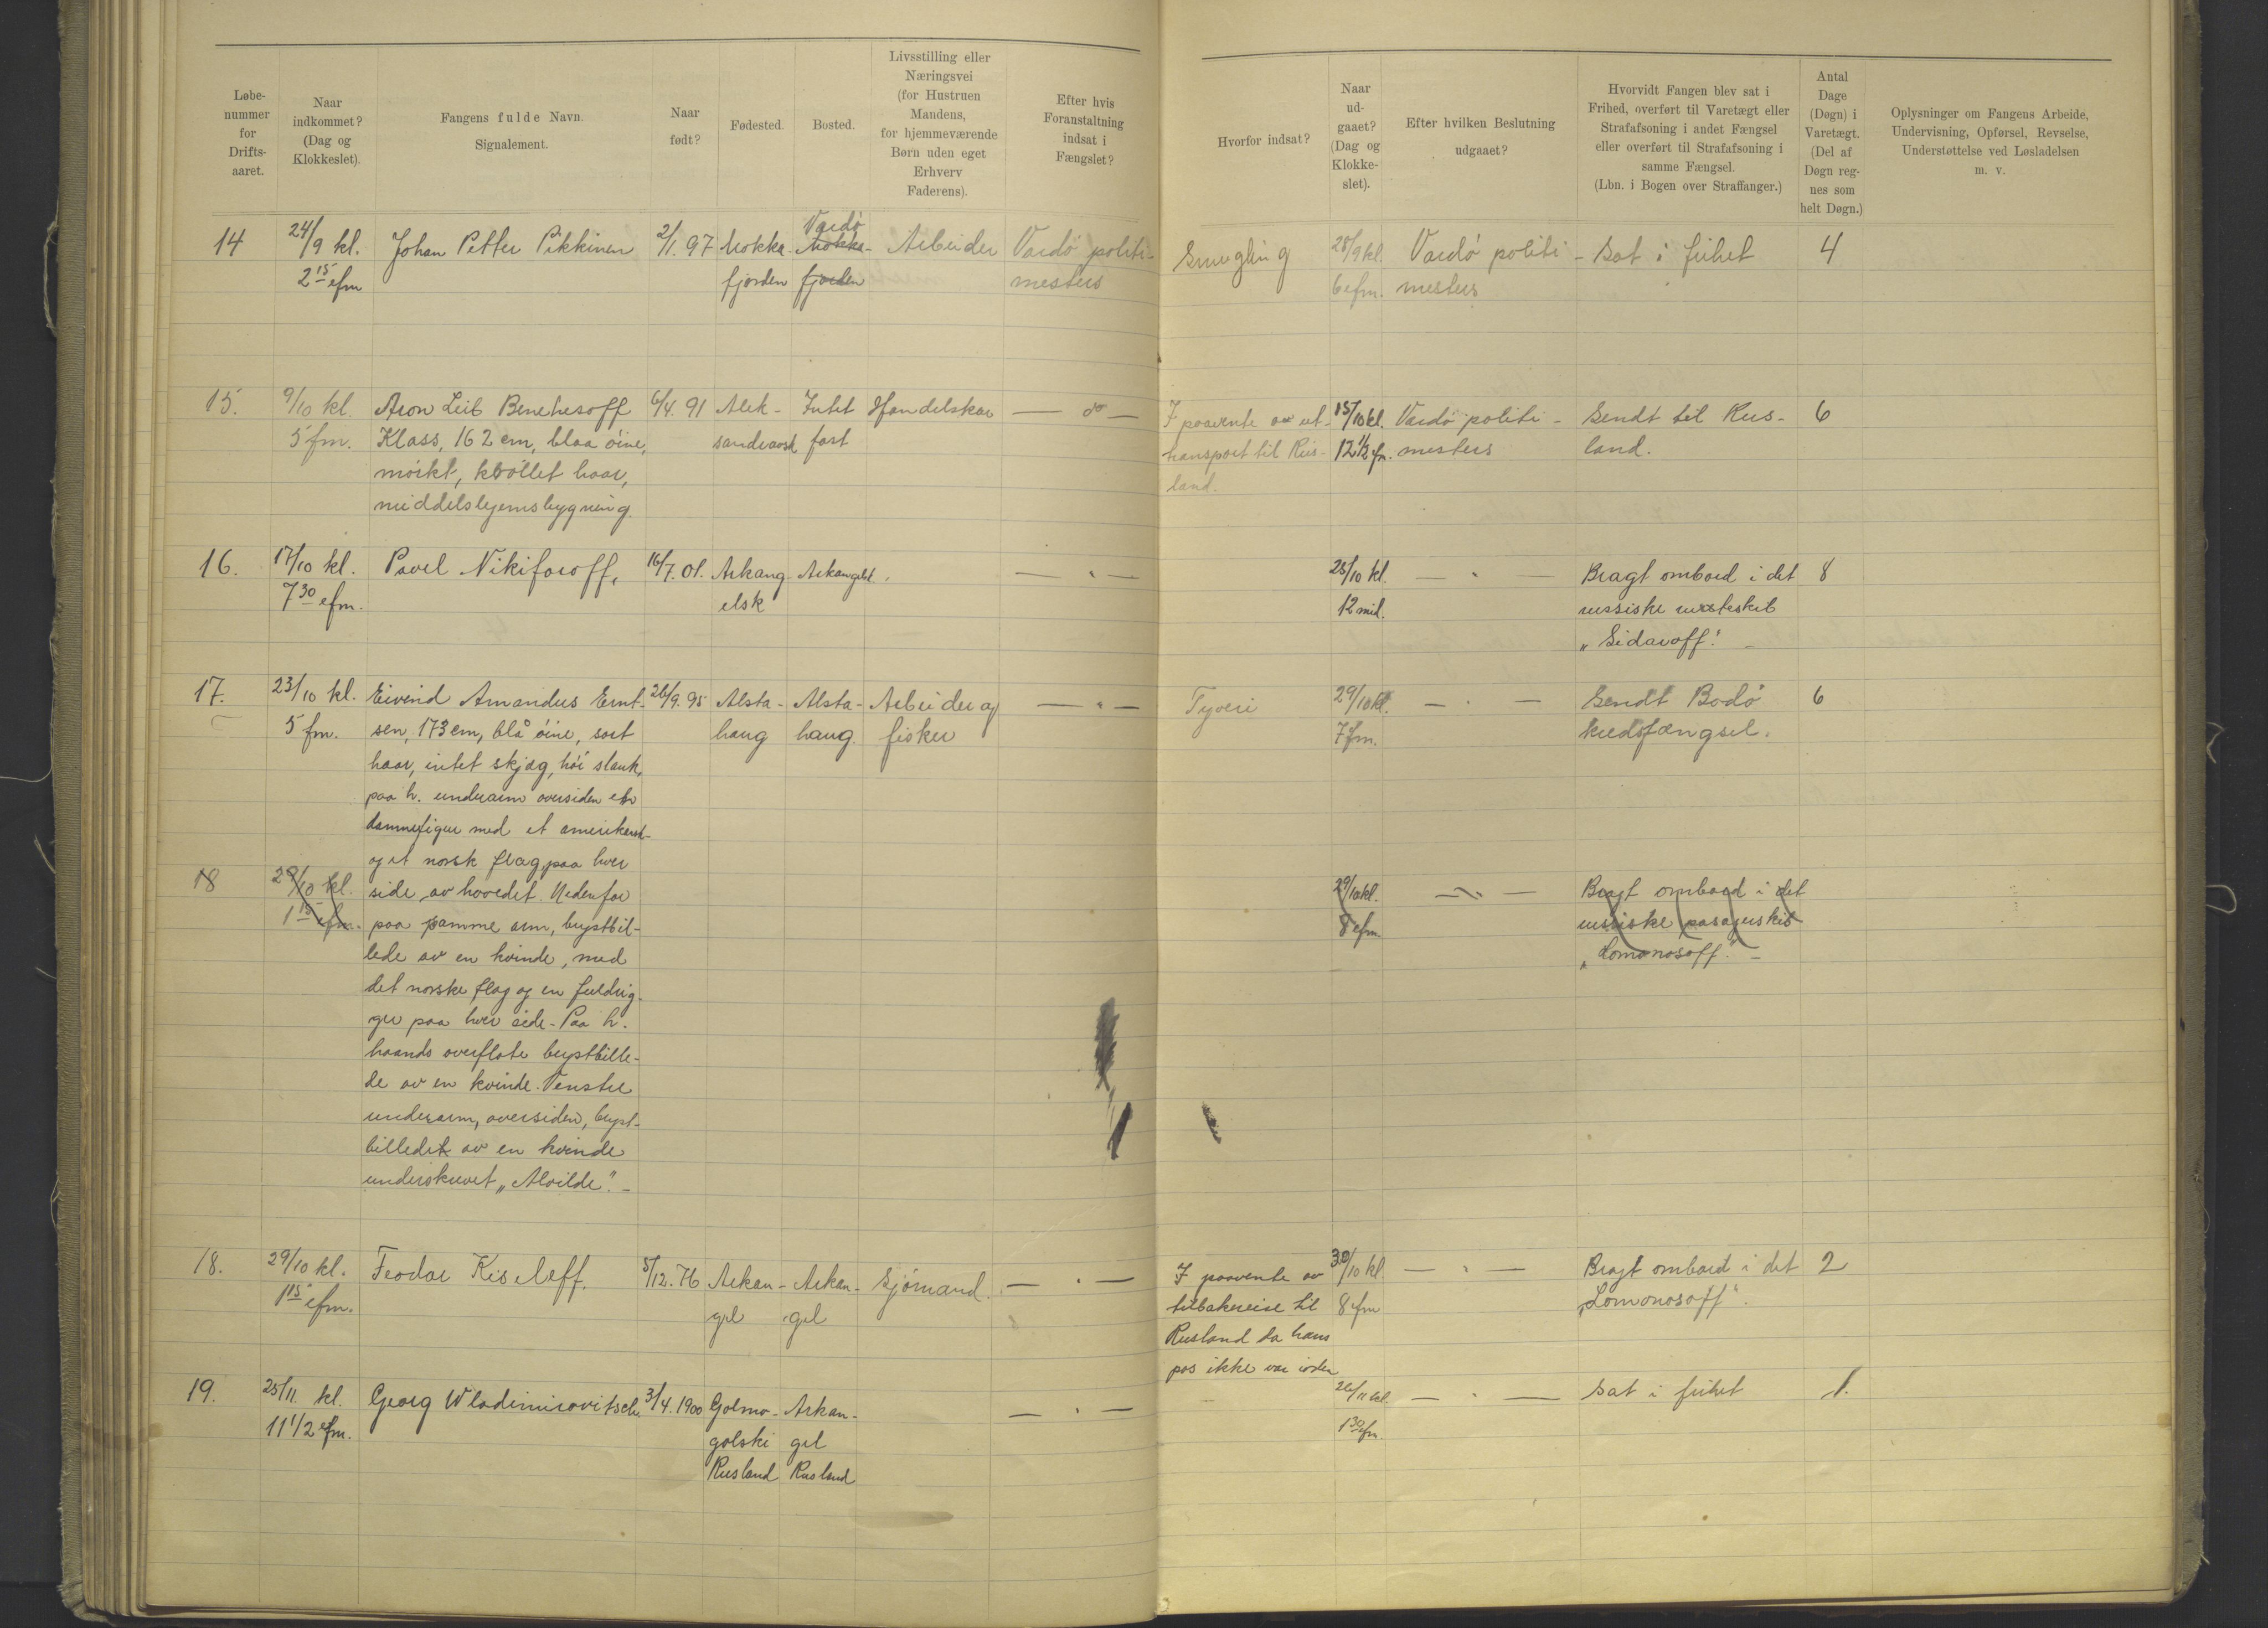 Løbe-
nummer
for
Drifts-
aaret.
Naar
indkommet?
(Dag og
Klokkeslet).
Fangens fulde Navn.
Signalement.
Naar
født?
Fødested.
Bosted.
Livsstilling eller
Næringsvei
(for Hustruen
Mandens,
for hjemmeværende
Børn uden eget
Erhverv
Faderens).
Efter hvis
Foranstaltning
indsat i
Fængslet?
Hvorfor indsat?
Naar
ud-
gaaet?
(Dag og
Klokke-
slet).
Efter hvilken Beslutning
udgaaet?
Hvorvidt Fangen blev sat i
Frihed, overført til Varetægt eller
Strafafsoning i andet Fængsel
eller overført til Strafafsoning i
samme Fængsel.
(Lbn. i Bogen over Straffanger.)
Antal
Dage
(Døgn) i
Varetægt.
(Del af
Døgn reg-
nes som
helt Døgn.)
Oplysninger om Fangens Arbeide,
Undervisning, Opførsel, Revselse,
Understøttelse ved Løsladelsen
m. v.
14
24/9 kl.
2 15 efm
Johan Petter Pikkinen
2/1. 97
Mokka-
fjorden
Vardö
Mokka-
fjorden
Arbeider
Vardö politi-
mesters
Smugling
28/9 kl.
6 efm.
Vardö politi-
mesters
Sat i frihet
4
15.
9/10 kl.
5 fm.
Aron Leib Benehesoff
Klass, 162 cm, blaa öine,
mörkt, kröllet haar,
middelslegemsbygning.
6/4. 91
Alek-
sandrovsk
Intet
fast
Handelskar
— do —
I paavente av ut-
transport til Rus-
land.
15/10 kl.
12 1/2 efm.
Vardö politi-
mesters
Sendt til Rus-
land.
6
16.
17/10 kl.
7 30 efm.
Pavel Nikiforoff,
16/7. 01.
Arkang-
elsk
Arkangelsk
— " —
25/10 kl.
12 mid.
— " —
Bragt ombord i det
russiske
"Sidaroff".
8
17.
23/10 kl.
5 fm.
Eivend Amandus Ernt-
sen, 173 cm, blå öine, sort
haar, intet skjæg, höi slank,
paa h. underarm oversiden en
damefigur med et amerikansk-
og et norsk flag paa hver
side av hovedet. Nedenfor
paa samme arm, brystbil-
lede av en kvinde, med
det norske flag og en fuldrig-
ger paa hver side. Paa h.
haands overflate brystbille-
de av en kvinde. Venstre
underarm, oversiden, bryst-
billedet av en kvinde
underskrevet "Alvilde". -
26/9. 95
Alsta-
haug
Alsta-
haug.
Arbeider og
fisker
— " —
Tyveri
29/10 kl.
7 fm.
— " —
Sendt Bodö
kredsfængsel.
6
18
29/10 kl.
1 15 efm.
29/10 kl.
8 efm.
— " —
Bragt ombord i det
russiske pasagerskib
"Lomonosoff". -
18.
29/10 kl.
1 15 efm.
Feodor Kiseleff.
5/12. 76
Arkan-
gel
Arkan-
gel
Sjömand.
— " —
I paavente av
tilbakereise til
Rusland da hans
pas ikke var iorden
30/10 kl
8 efm
— " —
Bragt ombord i det
"Lomonosoff".
2
19.
25/11. kl.
11 1/2 efm.
Georg Wladimirovitsch
3/4. 1900
Golmo-
golski
Rusland
Arkan-
gel
Rusland
— " —
26/11 kl.
1 30 efm.
— " —
Sat i frihet
1.